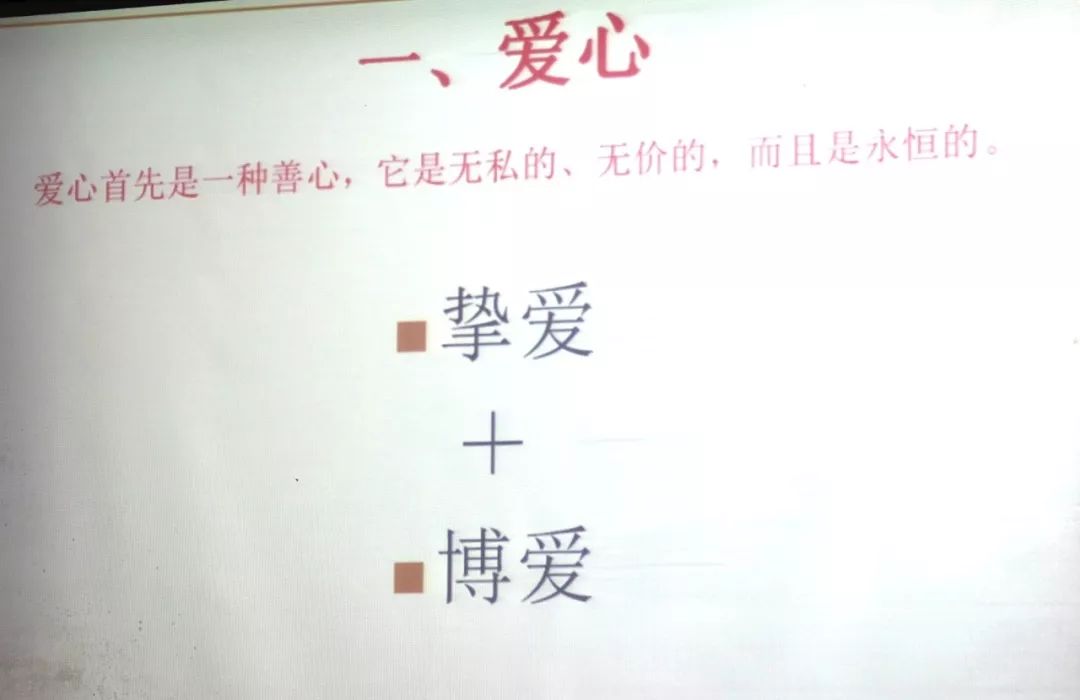 一、爱心
爱心首先是一种善心，它是无私的、无价的，而且是永恒的。
■挚爱
＋
■博爱